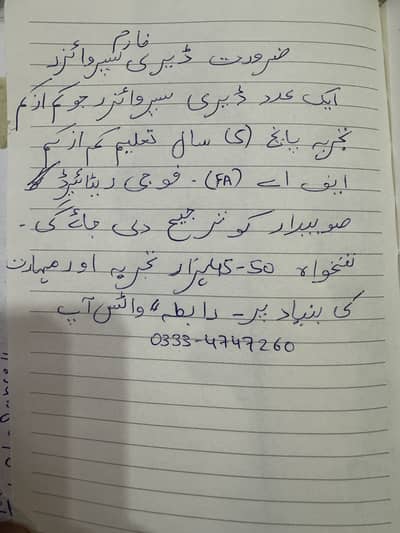 فارم
ضرورت ڈیری سپروائزر
ایک عدد ڈیری سپروائزر جو کم از کم
تجربہ پانچ (5) سال تعلیم کم از کم
ایف اے (FA)۔ فوجی ریٹائیرڈ
صوبیدار کو ترجیح دی جائے گی۔
تنخواہ 45-50 ہزار تجربہ اور مہارت
کی بنیاد پر۔ رابطہ واٹس آپ
0333-4747260